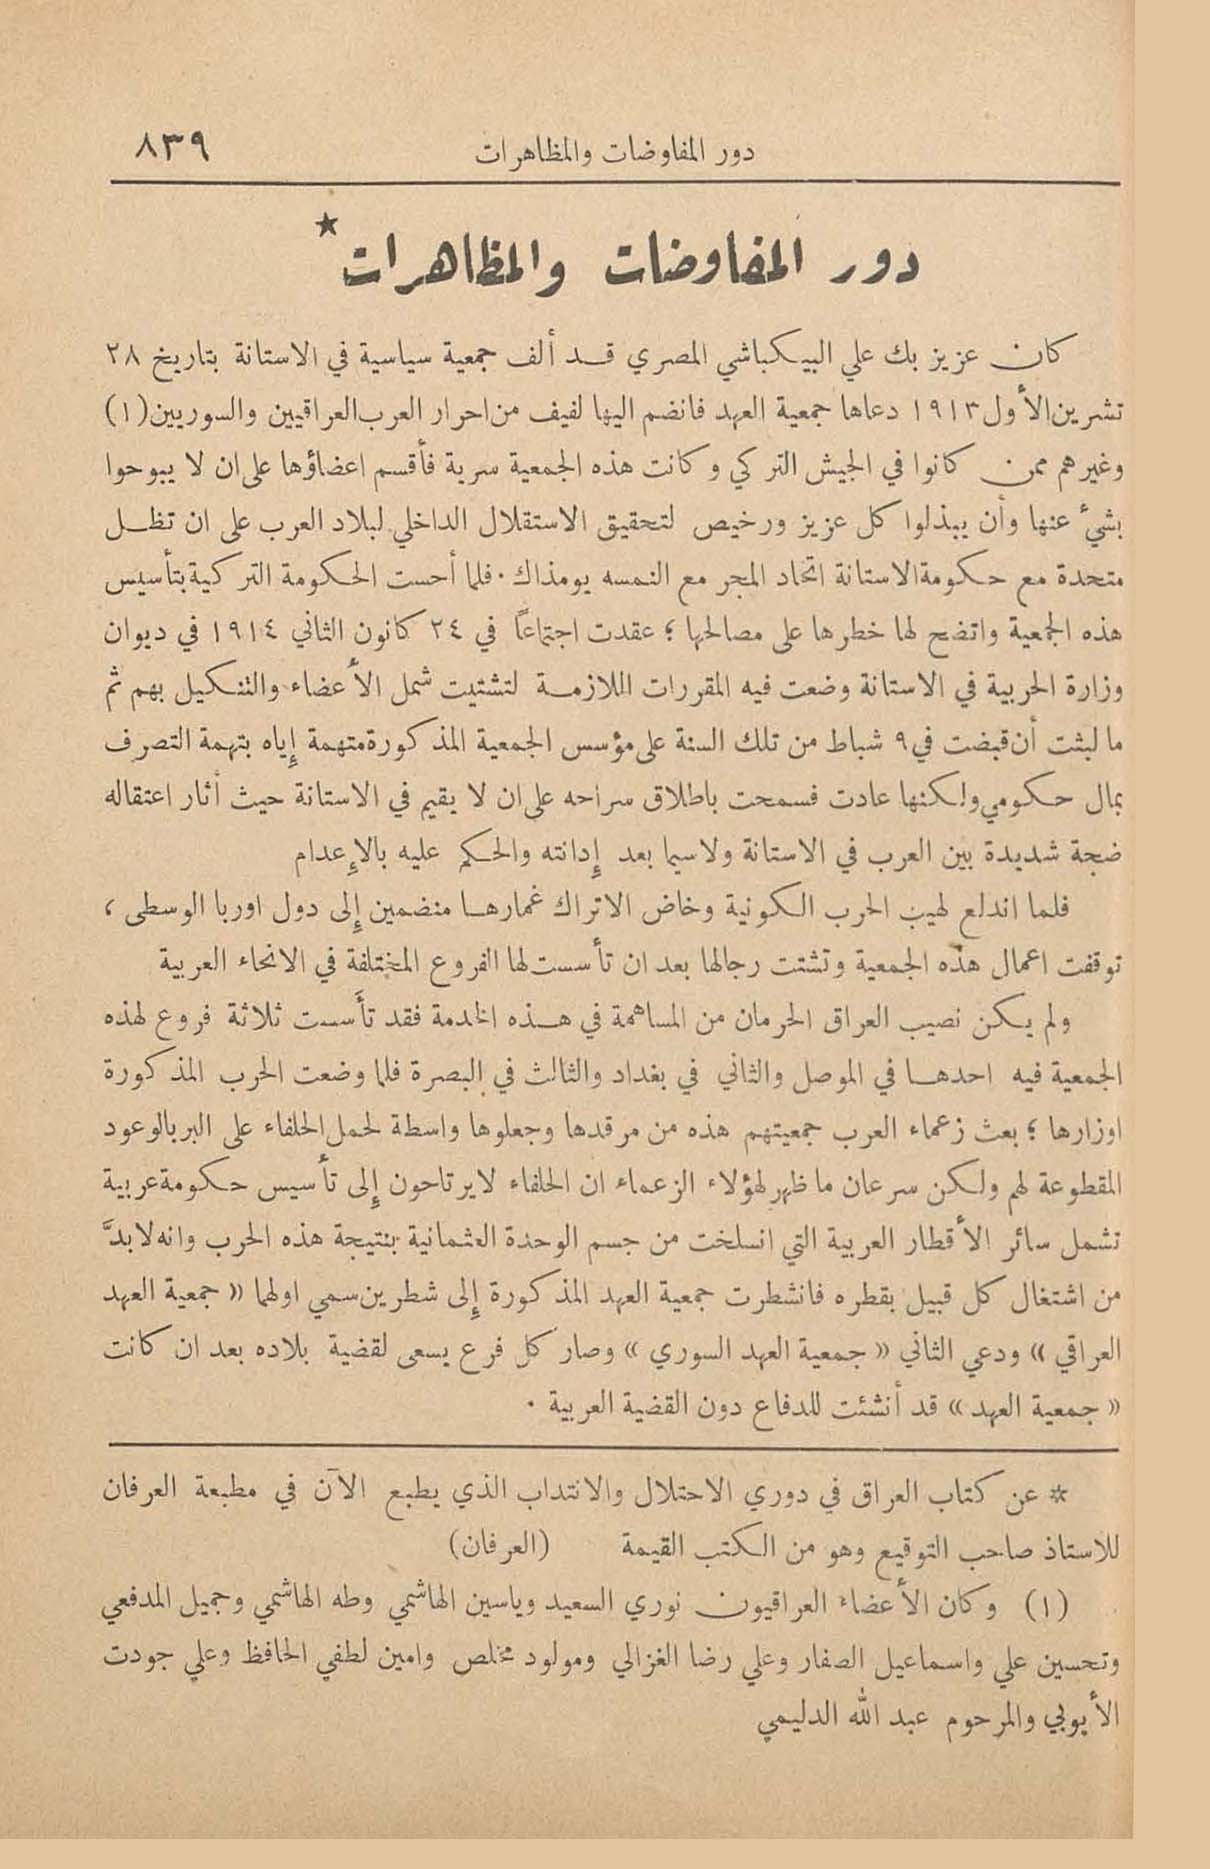 دور المفاوضات والمظاهرات ٨٣٩
دور المفاوضات والمظاهرات*
كان عزيز بك علي البيكباشي المصري قد ألف جمعية سياسية في الاستانة بتاريخ ٢٨
تشرين الأول ١٩١٣ دعاها جمعية العهد فانضم اليها لفيف من احرار العرب العراقيين والسوريين (١)
وغيرهم ممن كانوا في الجيش التركي وكانت هذه الجمعية سرية فأقسم اعضاؤها على ان لا يبوحوا
بشيء عنها وأن يبذلوا كل عزيز ورخيص لتحقيق الاستقلال الداخلي لبلاد العرب على ان تظل
متحدة مع حكومة الاستانة اتحاد المجر مع النمسه يومذاك . فلما أحست الحكومة التركية بتأسيس
هذه الجمعية واتضح لها خطرها على مصالحها ؛ عقدت اجتماعاً في ٢٤ كانون الثاني ١٩١٤ في ديوان
وزارة الحربية في الاستانة وضعت فيه المقررات اللازمة لتشتيت شمل الأعضاء والتنكيل بهم ثم
ما لبثت أن قبضت في ٩ شباط من تلك السنة على مؤسس الجمعية المذكورة متهمة إياه بتهمة التصرف
بمال حكومي ولكنها عادت فسمحت باطلاق سراحه على ان لا يقيم في الاستانة حيث أثار اعتقاله
ضجة شديدة بين العرب في الاستانة ولاسيما بعد إدانته والحكم عليه بالإعدام
فلما اندلع لهيب الحرب الكونية وخاض الاتراك غمارها منضمين إلى دول اوربا الوسطى ،
توقفت اعمال هذه الجمعية وتشتت رجالها بعد ان تأسست لها الفروع المختلفة في الانحاء العربية
ولم يكن نصيب العراق الحرمان من المساهمة في هذه الخدمة فقد تأسست ثلاثة فروع لهذه
الجمعية فيه احدها في الموصل والثاني في بغداد والثالث في البصرة فلما وضعت الحرب المذكورة
اوزارها ؛ بعث زعماء العرب جمعيتهم هذه من مرقدها وجعلوها واسطة لحمل الحلفاء على البر بالوعود
المقطوعة لهم ولكن سرعان ما ظهر لهؤلاء الزعماء ان الحلفاء لا يرتاحون إلى تأسيس حكومة عربية
تشمل سائر الأقطار العربية التي انسلخت من جسم الوحدة العثمانية بنتيجة هذه الحرب وانه لابدَّ
من اشتغال كل قبيل بقطره فانشطرت جمعية العهد المذكورة إلى شطرين سمي اولهما « جمعية العهد
العراقي » ودعي الثاني « جمعية العهد السوري » وصار كل فرع يسعى لقضية بلاده بعد ان كانت
« جمعية العهد » قد أنشئت للدفاع دون القضية العربية .
* عن كتاب العراق في دوري الاحتلال والانتداب الذي يطبع الآن في مطبعة العرفان
للاستاذ صاحب التوقيع وهو من الكتب القيمة (العرفان)
(١) وكان الأعضاء العراقيون نوري السعيد وياسين الهاشمي وطه الهاشمي وجميل المدفعي
وتحسين علي واسماعيل الصفار وعلي رضا الغزالي ومولود مخلص وامين لطفي الحافظ وعلي جودت
الأيوبي والمرحوم عبد الله الدليمي